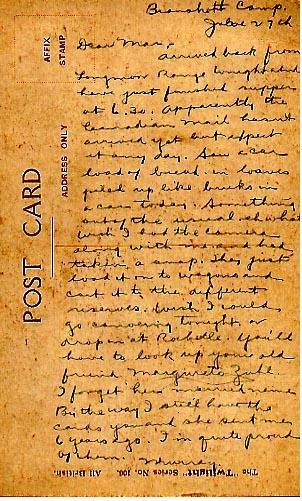 Bramshott Camp.
July 27th
Dear Mar,
arrived back from
Longmoor Range tonight and
have just finished supper
at 6.30. Apparently the
Canadian mail hasn't
arrived yet but expect
it any day. Saw a car
load of bread in loaves
piled up like bricks in
a car today. Something
out of the usual eh what
wish I had the camera
along with me and had
taken a snap. They just
load it on to wagons and
cart it to the different
reserves. Wish I could
go canoeing tonight or
drop in at Rochelle. You'll
have to look up your old
friend Marguerite Zuhl.
I forget her married name
By the way I still have the
cards you and she sent me
6 years ago. I'm quite proud
of them. Murray.
AFFIX
STAMP
ADDRESS ONLY
POST CARD
The "Twilight" Series No. 100. All British.